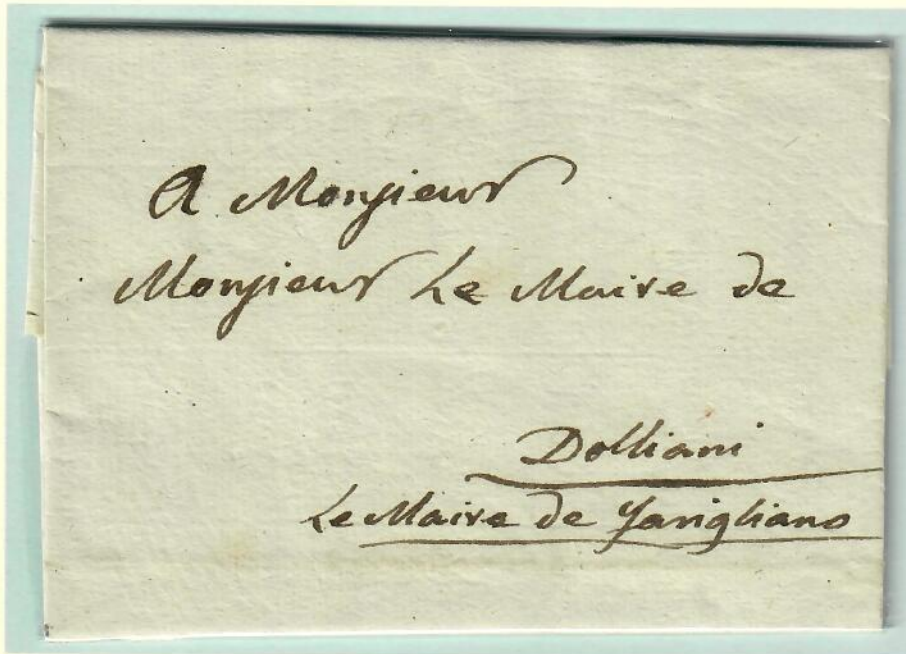 A Monsieur
Monsieur Le Maire de
Dolliani
Le Maire de Farigliano